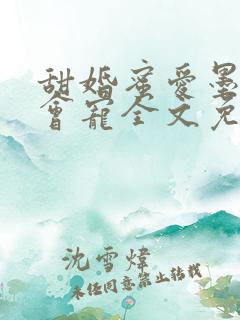 甜婚蜜爱墨
会宠全文免
沈雪炜
未经同意禁止转载